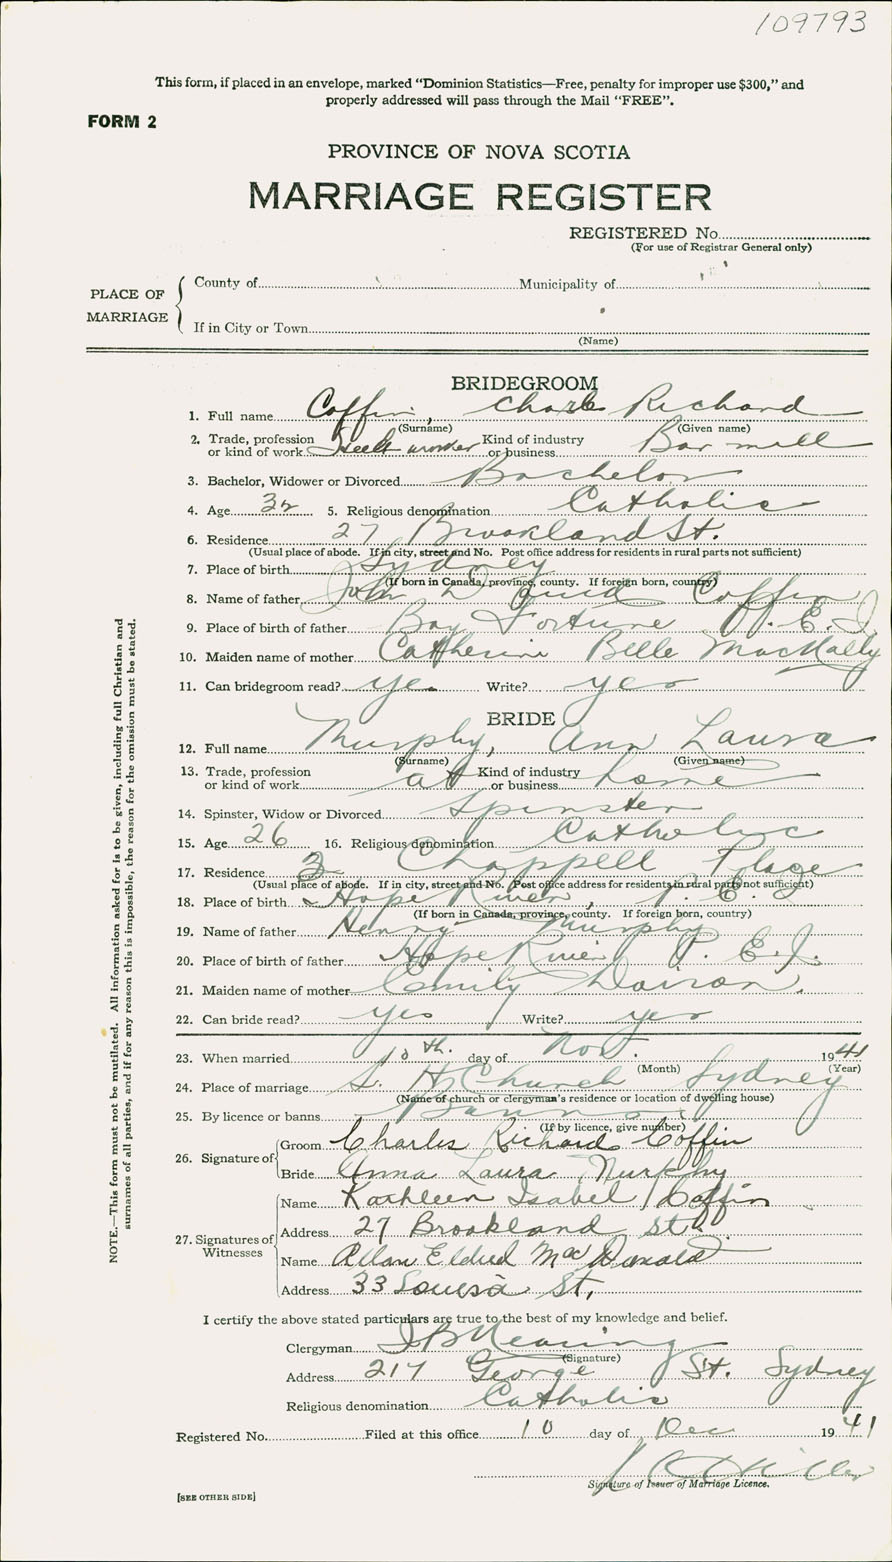 109793
This form, if placed in an envelope, marked "Dominion Statistics—Free, penalty for improper use $300," and
properly addressed will pass through the Mail "FREE".
FORM 2
PROVINCE OF NOVA SCOTIA
MARRIAGE REGISTER
REGISTERED No.
(For use of Registrar General only)
PLACE OF MARRIAGE
County of Municipality of
If in City or Town
(Name)
BRIDEGROOM
1. Full name Coffin, Charls Richard
(Surname) (Given name)
2. Trade, profession or kind of work Steel worker Kind of industry or business Bar mill
3. Bachelor, Widower or Divorced Bachelor
4. Age 32 5. Religious denomination Catholic
6. Residence 27 Brookland St.
(Usual place of abode. If in city, street and No. Post office address for residents in rural parts not sufficient)
7. Place of birth Sydney
(If born in Canada, province, county. If foreign born, country)
8. Name of father John Coffin
9. Place of birth of father Bay Fortune P. E. I.
10. Maiden name of mother Catherine Belle MacNally
11. Can bridegroom read? yes Write? yes
BRIDE
12. Full name Murphy, Ann Laura
(Surname) (Given name)
13. Trade, profession or kind of work at Kind of industry or business home
14. Spinster, Widow or Divorced Spinster
15. Age 26 16. Religious denomination Catholic
17. Residence 3 Chappell Place
(Usual place of abode. If in city, street and No. Post office address for residents in rural parts not sufficient)
18. Place of birth Hope River, P. E. I
(If born in Canada, province, county. If foreign born, country)
19. Name of father Henry Murphy
20. Place of birth of father Hope River P. E. I.
21. Maiden name of mother Emily
22. Can bride read? yes Write? yes
23. When married 10th. day of Nov. 1941
(Month) (Year)
24. Place of marriage S. H. Church Sydney
(Name of church or clergyman's residence or location of dwelling house)
25. By licence or banns Banns
(If by licence, give number)
26. Signature of
Groom Charles Richard Coffin
Bride Anna Laura Murphy
27. Signatures of Witnesses
Name Kathleen Isabel Coffin
Address 27 Brookland St.
Name Allan Eldred MacDonald
Address 33 Louisa St.
I certify the above stated particulars are true to the best of my knowledge and belief.
Clergyman
(Signature)
Address 217 George St. Sydney
Religious denomination Catholic
Registered No. Filed at this office 10 day of Dec 1941
Signature of Issuer of Marriage Licence.
[SEE OTHER SIDE]
NOTE.—This form must not be mutilated. All information asked for is to be given, including full Christian and
surnames of all parties, and if for any reason this is impossible, the reason for the omission must be stated.